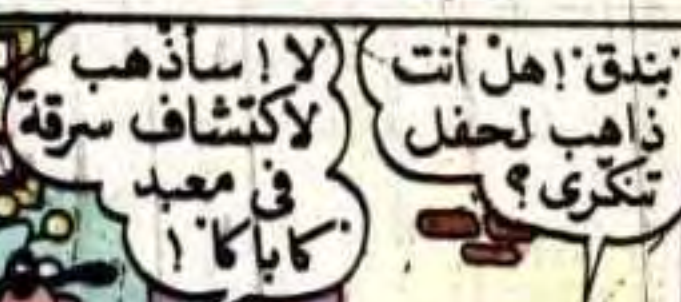 بندق ! هل أنت
ذاهب لحفل
تنكّرى ؟
لا ! سأذهب
لاكتشاف سرقة
فى معبد
"كاباكا" !